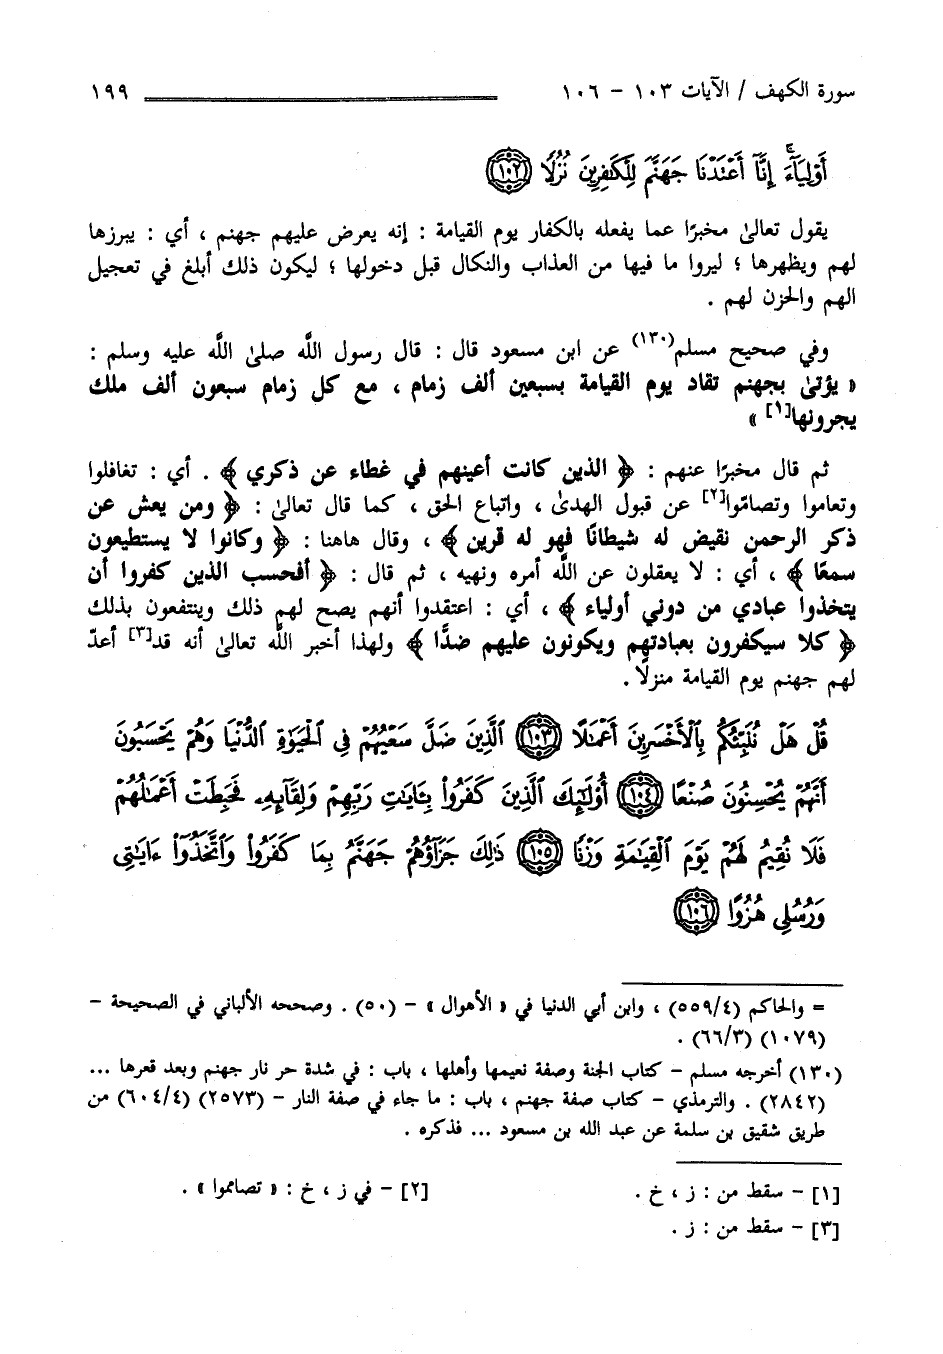 سورة الكهف / الآيات ١٠٣ - ١٠٦ ١٩٩
أَوْلِيَآءَ ۚ إِنَّآ أَعْتَدْنَا جَهَنَّمَ لِلْكَٰفِرِينَ نُزُلًا ﴿١٠٢﴾
يقول تعالىٰ مخبرًا عما يفعله بالكفار يوم القيامة : إنه يعرض عليهم جهنم ، أي : يبرزها
لهم ويظهرها ؛ ليروا ما فيها من العذاب والنكال قبل دخولها ؛ ليكون ذلك أبلغ في تعجيل
الهم والحزن لهم .
وفي صحيح مسلم(١٣٠) عن ابن مسعود قال : قال رسول اللَّه صلىٰ اللَّه عليه وسلم :
« يؤتىٰ بجهنم تقاد يوم القيامة بسبعين ألف زمام ، مع كل زمام سبعون ألف ملك
يجرونها[١] »
ثم قال مخبرًا عنهم : ﴿ الذين كانت أعينهم في غطاء عن ذكري ﴾ . أي : تغافلوا
وتعاموا وتصامّوا[٢] عن قبول الهدىٰ ، واتباع الحق ، كما قال تعالىٰ : ﴿ ومن يعش عن
ذكر الرحمن نقيض له شيطانًا فهو له قرين ﴾ ، وقال هاهنا : ﴿ وكانوا لا يستطيعون
سمعًا ﴾ ، أي : لا يعقلون عن اللَّه أمره ونهيه ، ثم قال : ﴿ أفحسب الذين كفروا أن
يتخذوا عبادي من دوني أولياء ﴾ ، أي : اعتقدوا أنهم يصح لهم ذلك وينتفعون بذلك
﴿ كلا سيكفرون بعبادتهم ويكونون عليهم ضدًّا ﴾ ولهذا أخبر اللَّه تعالىٰ أنه قد[٣] أعدّ
لهم جهنم يوم القيامة منزلًا .
قُلْ هَلْ نُنَبِّئُكُم بِٱلْأَخْسَرِينَ أَعْمَٰلًا ﴿١٠٣﴾ ٱلَّذِينَ ضَلَّ سَعْيُهُمْ فِى ٱلْحَيَوٰةِ ٱلدُّنْيَا وَهُمْ يَحْسَبُونَ
أَنَّهُمْ يُحْسِنُونَ صُنْعًا ﴿١٠٤﴾ أُو۟لَٰٓئِكَ ٱلَّذِينَ كَفَرُوا۟ بِـَٔايَٰتِ رَبِّهِمْ وَلِقَآئِهِۦ فَحَبِطَتْ أَعْمَٰلُهُمْ
فَلَا نُقِيمُ لَهُمْ يَوْمَ ٱلْقِيَٰمَةِ وَزْنًا ﴿١٠٥﴾ ذَٰلِكَ جَزَآؤُهُمْ جَهَنَّمُ بِمَا كَفَرُوا۟ وَٱتَّخَذُوٓا۟ ءَايَٰتِى
وَرُسُلِى هُزُوًا ﴿١٠٦﴾
= والحاكم (٥٥٩/٤) ، وابن أبي الدنيا في « الأهوال » - (٥٠) . وصححه الألباني في الصحيحة -
(١٠٧٩) (٦٦/٣) .
(١٣٠) أخرجه مسلم - كتاب الجنة وصفة نعيمها وأهلها ، باب : في شدة حر نار جهنم وبعد قعرها ...
(٢٨٤٢) . والترمذي - كتاب صفة جهنم ، باب : ما جاء في صفة النار - (٢٥٧٣) (٦٠٤/٤) من
طريق شقيق بن سلمة عن عبد الله بن مسعود ... فذكره .
[١] - سقط من : ز ، خ . [٢] - في ز ، خ : « تصامموا » .
[٣] - سقط من : ز .